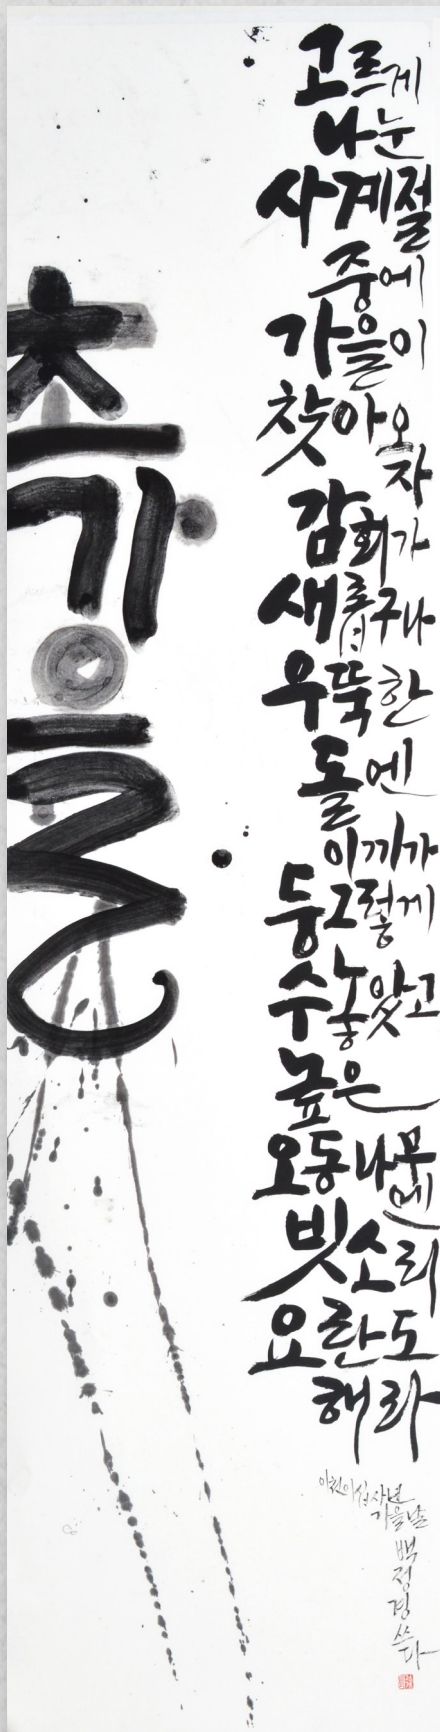 초가을
고르게
나눈
사계절
중에
가을이
찾아오자
감회가
새롭구나
우뚝한
돌엔
이끼가
둥그렇게
수놓았고
높은
오동나무엔
빗소리
요란도
해라
이천이십사년
가을날
백정경
쓰다